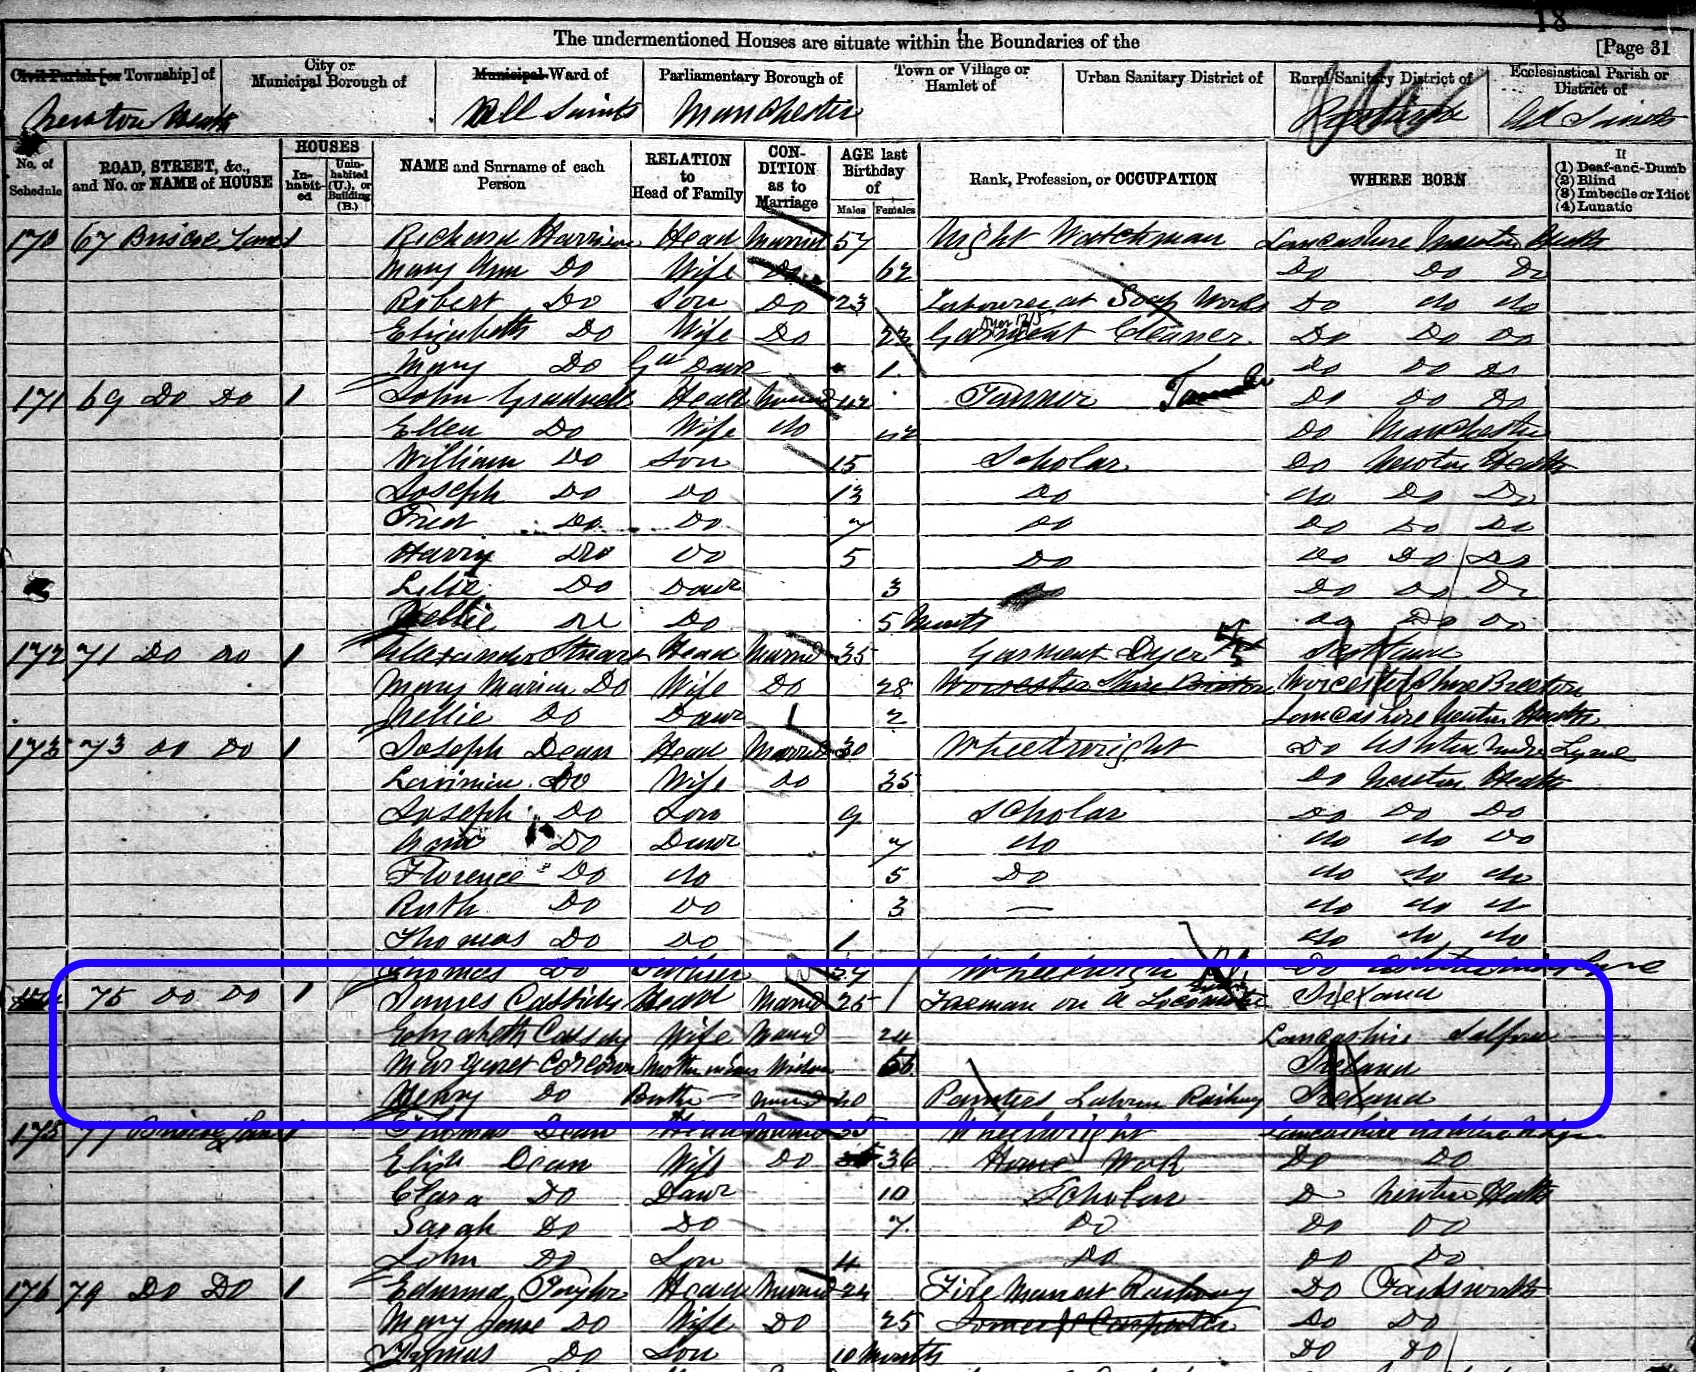 18
The undermentioned Houses are situate within the Boundaries of the [Page 31
Civil Parish [or Township] of City or Municipal Borough of Municipal Ward of Parliamentary Borough of Town or Village or Hamlet of Urban Sanitary District of Rural Sanitary District of Ecclesiastical Parish or District of
Newton Heath All Saints Manchester All Saints
No. of Schedule ROAD, STREET, &c., and No. or NAME of HOUSE HOUSES In-habit-ed Unin-habited (U.), or Building (B.) NAME and Surname of each Person RELATION to Head of Family CON-DITION as to Marriage AGE last Birthday of Males Females Rank, Profession, or OCCUPATION WHERE BORN If (1) Deaf-and-Dumb (2) Blind (3) Imbecile or Idiot (4) Lunatic
170 67 Briscoe Lane 1 Richard Harrison Head Married 57 Night Watchman Lancashire Newton Heath
Mary Ann Do Wife Do 62 Do Do Do
Robert Do Son Do 23 Labourer at Soap Works Do Do Do
Elizabeth Do Wife Do Garment Cleaner Do Do Do
Mary Do 1 Do Do Do
171 69 Do Do 1 John Head Married 42 Tanner Do Do Do
Ellen Do Wife Do 42 Do Manchester
William Do Son 15 Scholar Do Newton Heath
Joseph Do Do 13 Do Do Do Do
Fred Do Do 7 Do Do Do Do
Harry Do Do 5 Do Do Do Do
Do Daur 3 Do Do Do
Do Do 5 Months Do Do Do
172 71 Do Do 1 Alexander Stuart Head Married 35 Garment Dyer Scotland
Mary Maria Do Wife Do 28 Worcestershire
Nellie Do Daur 2 Lancashire Newton Heath
173 73 Do Do 1 Joseph Dean Head Married 30 Wheelwright Do Ashton Under Lyne
Lavinia Do Wife Do 35 Do Newton Heath
Joseph Do Son 9 Scholar Do Do Do
Do Daur 7 Do Do Do Do
Florence Do Do 5 Do Do Do Do
Ruth Do Do 3 — Do Do Do
Thomas Do Do 1 Do Do Do
Thomas Do Father 57 Wheelwright Do Ashton under Lyne
75 Do Do 1 James Cassidy Head Married 25 Fireman on a Locomotive Ireland
Elizabeth Cassidy Wife Married 24 Lancashire Salford
Margaret Corcoran Mother in law Widow Ireland
Henry Do 40 Painters Labourer Railway Ireland
175 77 Briscoe Lane 1 Thomas Dean Head Married 35 Wheelwright Lancashire
Eliza Dean Wife Do 36 Home Work Do Do
Clara Do Daur 10 Scholar Do Newton Heath
Sarah Do Do 7 Do Do Do
John Do Son 4 Do Do Do
176 79 Do Do 1 Edmund Taylor Head Married 24 Fire Man at Railway Do Failsworth
Mary Jane Do Wife Do 25 Do Do
Thomas Do Son 10 Months Do Do